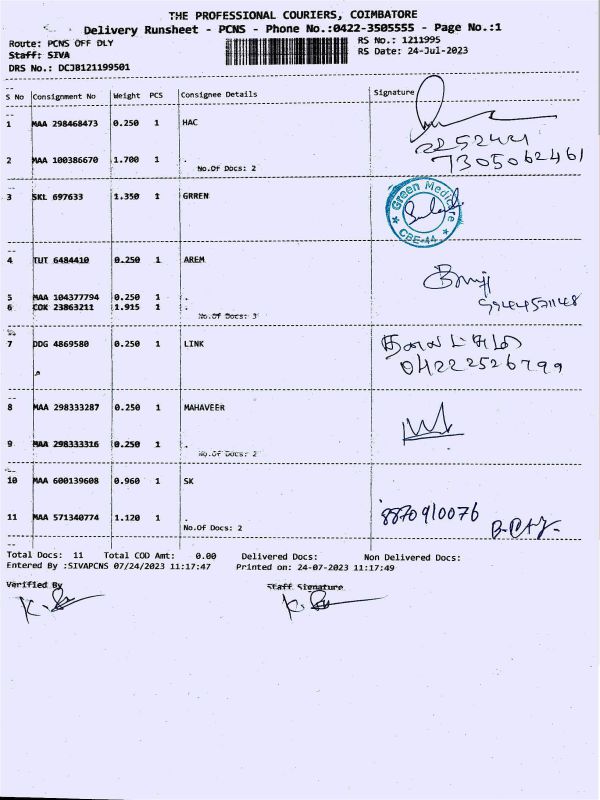 THE PROFESSIONAL COURIERS, COIMBATORE
Delivery Runsheet - PCNS - Phone No.:0422-3505555 - Page No.:1
Route: PCNS OFF DLY
RS No.: 1211995
Staff: SIVA
RS Date: 24-Jul-2023
DRS No.: DCJB121199501
S No Consignment No Weight PCS Consignee Details Signature
1 MAA 298468473 0.250 1 HAC
2 MAA 100386670 1.700 1 .
7305062461
No.Of Docs: 2
3 SKL 697633 1.350 1 GRREN
Green Medicare
CBE-44
4 TUT 6484410 0.250 1 AREM
5 MAA 104377794 0.250 1 .
6 COK 23863211 1.915 1 .
No.Of Docs: 3
7 DDG 4869580 0.250 1 LINK
04222526799
8 MAA 298333287 0.250 1 MAHAVEER
9 MAA 298333316 0.250 1 .
No.Of Docs: 2
10 MAA 600139608 0.960 1 SK
11 MAA 571340774 1.120 1 .
8870910076
No.Of Docs: 2
Total Docs: 11 Total COD Amt: 0.00 Delivered Docs: Non Delivered Docs:
Entered By :SIVAPCNS 07/24/2023 11:17:47 Printed on: 24-07-2023 11:17:49
Verified By Staff Signature